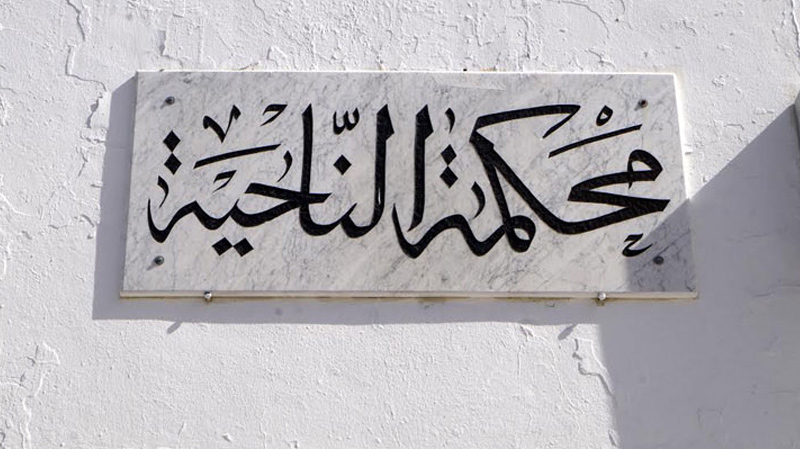 محكمة النّاحية